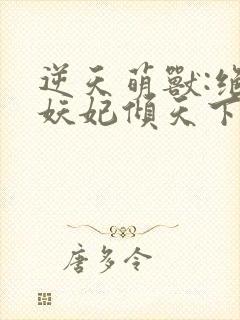 逆天萌獸:絕
妖妃傾天下
唐多令